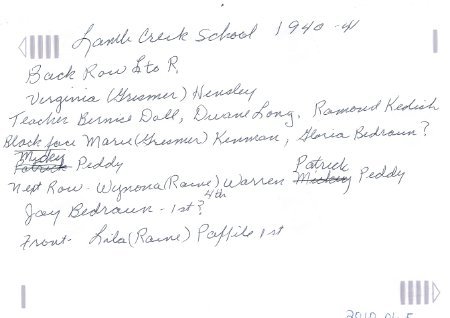 Lamb Creek School 1940-41
Back Row L to R.
Virginia (Gresmer) Hensley
Teacher Bernice Doll, Duane Long, Ramond Kedish
Black face Marie (Gresmer) Kenman, Gloria Bedraun?
Mickey
Patrick Peddy
Patrick
Next Row - Wynona (Raine) Warren Mickey Peddy
4th
Jay Bedraun - 1st?
Front - Lila (Raine) Paffile 1st